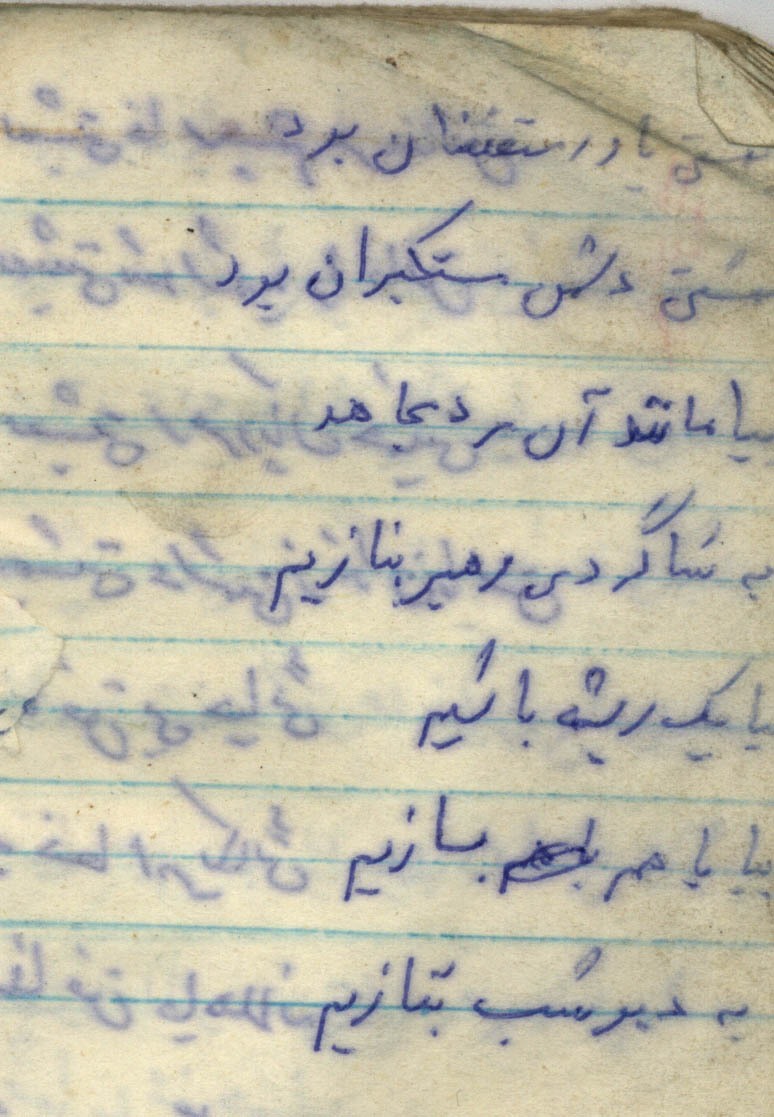 یاور مستضعفان بود
دشمن مستکبران بود
بیا مانند آن مرد مجاهد
به شاگردی رهبر بنازیم
بیا یک ریشه باشیم
بیا با هم بسازیم
به دیو شب بتازیم